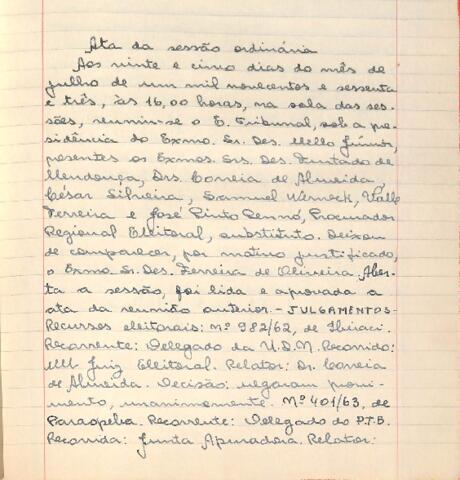 Ata da sessão ordinária
Aos vinte e cinco dias do mês de
julho de um mil novecentos e sessenta
e três, às 16,00 horas, na sala das ses-
sões, reuniu-se o E. Tribunal, sob a pre-
sidência do Exmo. Sr. Des. Mello Júnior,
presentes os Exmos. Srs. Des. Furtado de
Mendonça, Drs. Correia de Almeida,
César Silveira, Samuel Werneck, Valle
Ferreira e José Pinto Rennó, Procurador
Regional Eleitoral, substituto. Deixou
de comparecer, por motivo justificado,
o Exmo. Sr. Des. Ferreira de Oliveira. Aber-
ta a sessão, foi lida e aprovada a
ata da reunião anterior. - JULGAMENTOS -
Recursos eleitorais: nº 982/62, de Ibiraci.
Recorrente: Delegado da U.D.N. Recorrido:
MM. Juiz Eleitoral. Relator: Dr. Correia
de Almeida. Decisão: negaram provi-
mento, unanimemente. Nº 401/63, de
Paraopeba. Recorrente: Delegado do P.T.B.
Recorrida: Junta Apuradora. Relator: